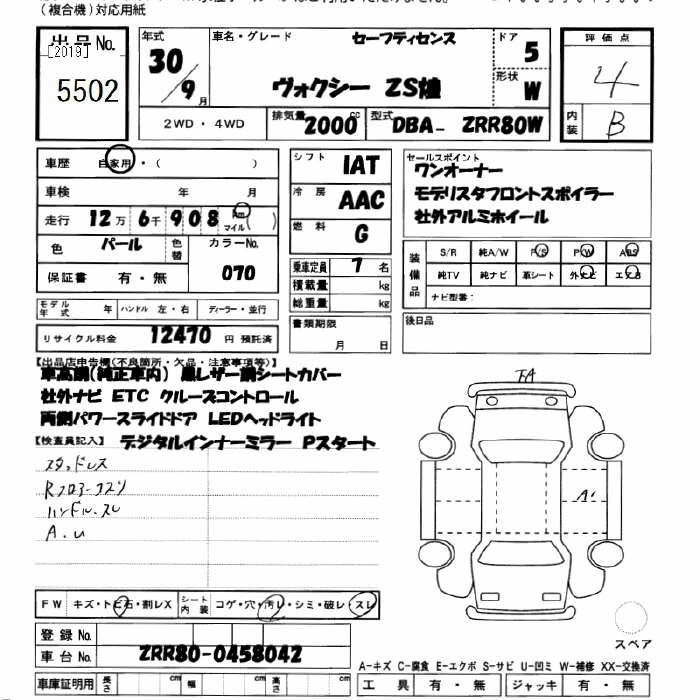 (複合機)対応用紙
出品No.
[2019]
5502
年式
30/9月
車名・グレード
セーフティセンス
ヴォクシー ZS煌
ドア
5
形状
W
評価点
4
内装
B
2WD・4WD
排気量
2000cc
型式
DBA- ZRR80W
車歴 自家用・( )
車検 年 月
走行 12万 6千 908 Km マイル ( )
色 パール 色替 カラーNo.
070
保証書 有・無
モデル年式 年 ハンドル 左・右 ディーラー・並行
リサイクル料金 12470 円 預託済
シフト IAT
冷房 AAC
燃料 G
乗車定員 7 名
積載量 kg
総重量 kg
書類期限
月 日
セールスポイント
ワンオーナー
モデリスタフロントスポイラー
社外アルミホイール
装備品
S/R 純A/W P/S P/W ABS
純TV 純ナビ 革シート 外ナビ エアB
ナビ型番:
後日品
【出品店申告欄(不良箇所・欠品・注意事項等)】
車高調(純正車内) 黒レザー調シートカバー
社外ナビ ETC クルーズコントロール
両側パワースライドドア LEDヘッドライト
【検査員記入】 デジタルインナーミラー Pスタート
スタッドレス
Rフロアーカスリ
ハンドルスレ
A.U
FA
A1
FW キズ・トビ石・割レX シート内装 コゲ・穴・汚レ・シミ・破レ・スレ
登録No.
車台No. ZRR80-0458042
車庫証明用 長さ cm 幅 cm 高さ cm
スペア
A-キズ C-腐食 E-エクボ S-サビ U-凹ミ W-補修 XX-交換済
工具 有・無 ジャッキ 有・無